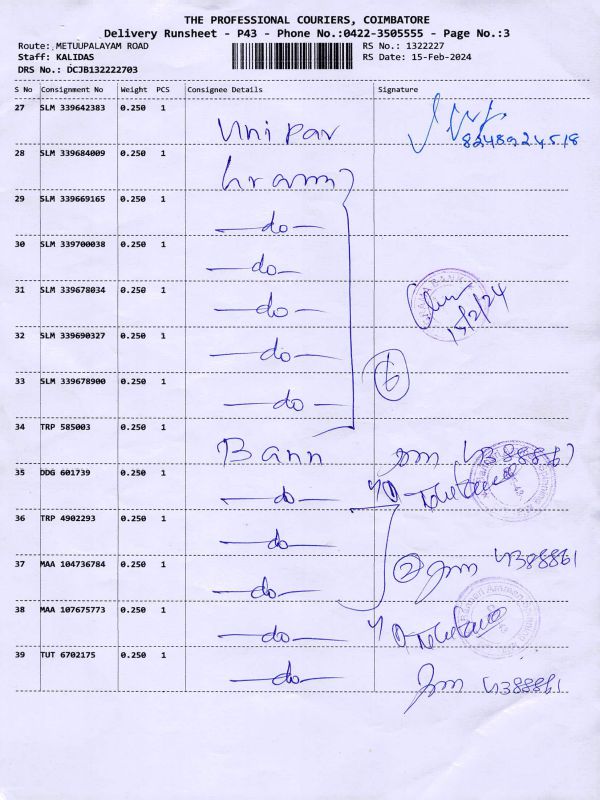 THE PROFESSIONAL COURIERS, COIMBATORE
Delivery Runsheet - P43 - Phone No.:0422-3505555 - Page No.:3
Route: METUUPALAYAM ROAD
RS No.: 1322227
Staff: KALIDAS
RS Date: 15-Feb-2024
DRS No.: DCJB132222703
S No Consignment No Weight PCS Consignee Details Signature
27 SLM 339642383 0.250 1
Unipar
8248924518
28 SLM 339684009 0.250 1
29 SLM 339669165 0.250 1
do
30 SLM 339700038 0.250 1
do
31 SLM 339678034 0.250 1
do
15/2/24
32 SLM 339690327 0.250 1
do
33 SLM 339678900 0.250 1
do
6
34 TRP 585003 0.250 1
Bann
35 DDG 601739 0.250 1
do
36 TRP 4902293 0.250 1
do
37 MAA 104736784 0.250 1
do
2
4388861
38 MAA 107675773 0.250 1
do
39 TUT 6702175 0.250 1
do
4388861